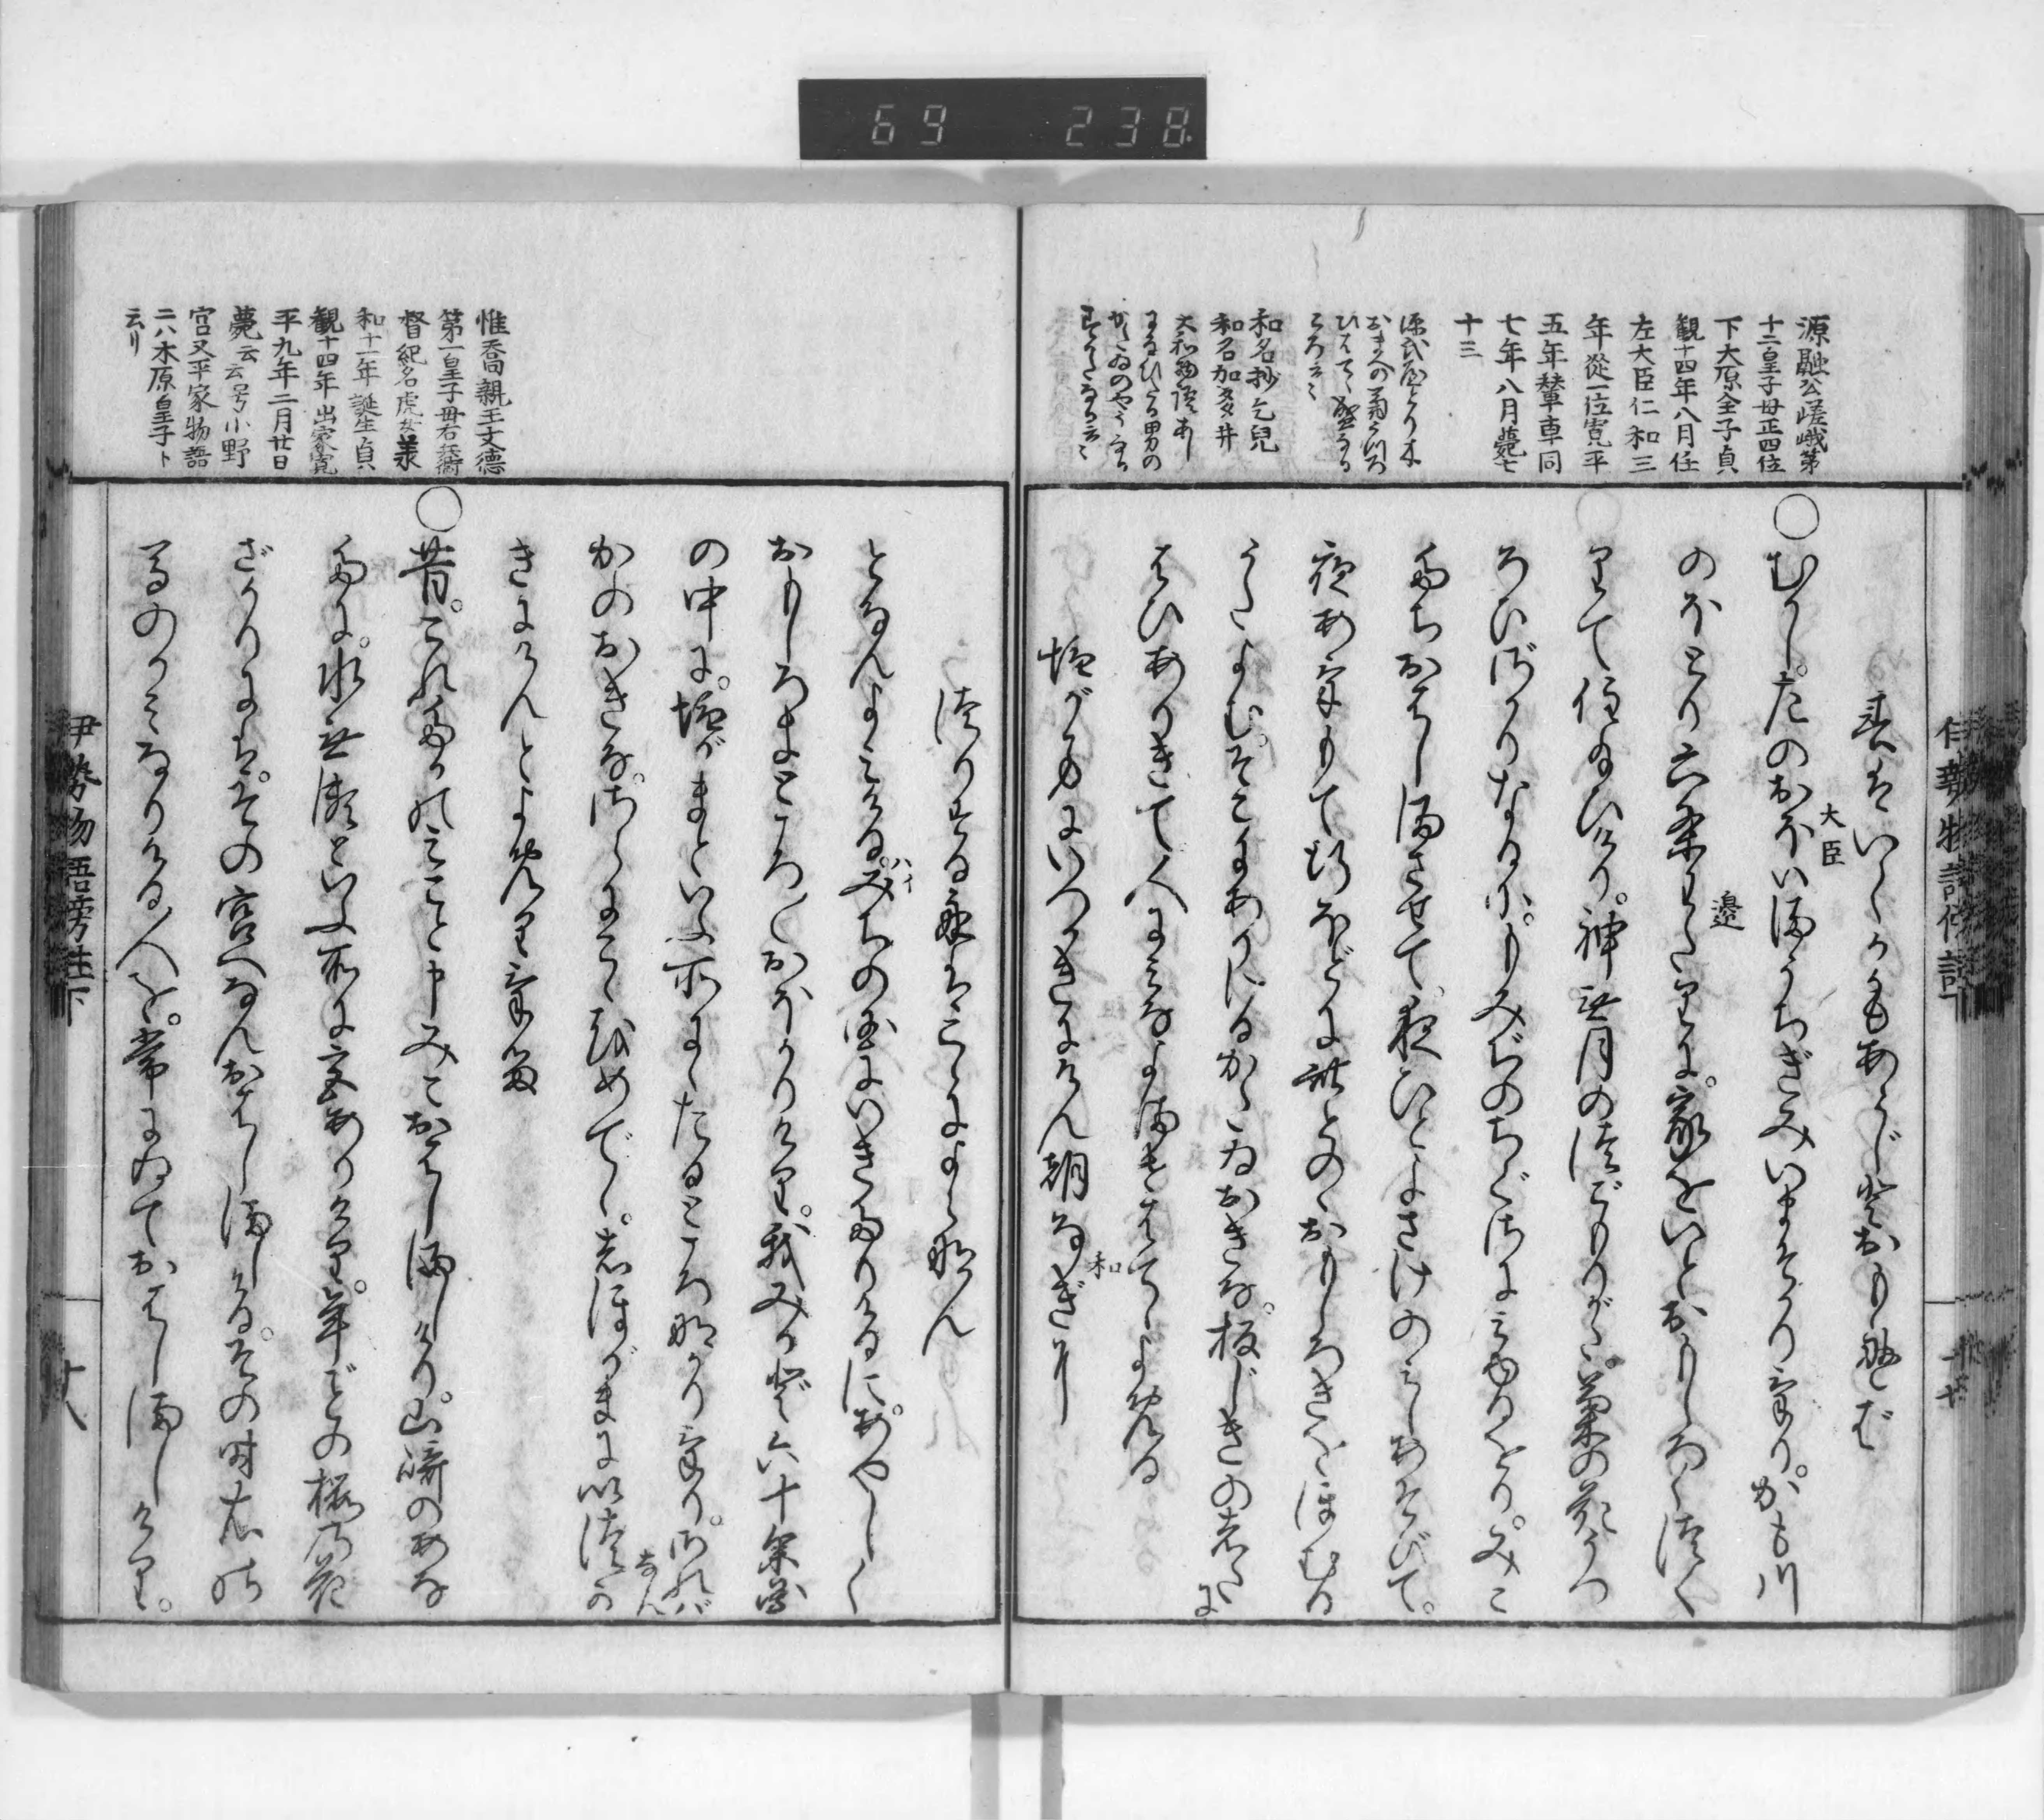 69 238
源融公嵯峨第
十二皇子母正四位
下大原全子貞
観十四年八月任
左大臣仁和三
年従一位寛平
五年輦車同
七年八月薨七
十三
和名抄乞兒
和名加多井
春はいくかもあらじとおもへば
○むかし。左のおほいまうちぎみいまそかりけり。かも川
大臣
のほとり六条わたりに。家をいとおもしろくつくり
邊
て住給ひけり。神無月の
ろひざかりなるに。もみぢのちぐさに見ゆるをり。みこ
たちおはしまさせて。夜ひとよさけのみしあそびて。
夜あけもて行ほどに此とのゝおもしろきをほむる
うたよむ。そこにありけるかたゐおきな。板じきのしたに
はひありきて人にみなよませはてゝよめる
塩がまにいつかきにけん朝なぎに
和
つりする舟はこゝによらなん
となんよみける。みちの国にいきたりけるに。あやしく
ハイ
おもしろきところ〴〵おほかりけり。我みかど六十余国
の中に。塩がまといふ所ににたるところなかりけり。されば
なん
かのおきな。さらにこゝをめでゝ。しほがまにいつか
きにけんとよめりける
惟喬親王文徳
第一皇子母右兵衛
督紀名虎女承
和十一年誕生貞
観十四年出家寛
平九年二月廿日
薨云云号小野
宮又平家物語
ニハ木原皇子ト
云リ
○昔。これたかのみこと申みこおはしましけり。山崎のあな
たに。水無瀬といふ所に宮ありけり。年ごとの桜の花
ざかりには。その宮へなんおはしましける。その時右の
むまのかみなりける人を。常にゐておはしましけり。
伊勢物語傍註下
十八